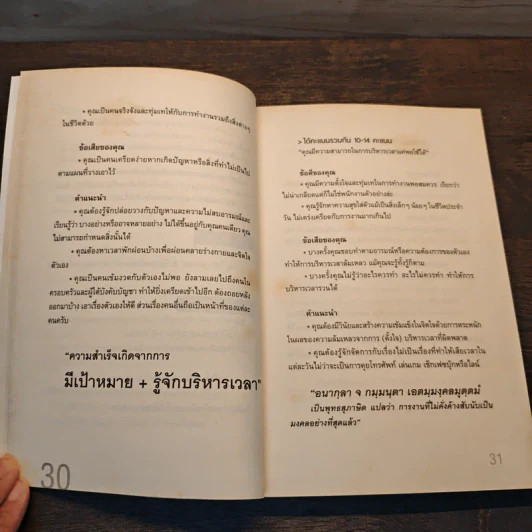 • คุณเป็นคนจริงจังและทุ่มเทให้กับการทำงานรวมถึงสิ่งต่าง ๆ
ในชีวิตด้วย
ข้อเสียของคุณ
• คุณเป็นคนเครียดง่ายหากเกิดปัญหาหรือสิ่งที่ทำไม่เป็นไป
ตามแผนที่วางเอาไว้
คำแนะนำ
• คุณต้องรู้จักปล่อยวางกับปัญหาและความไม่สมอารมณ์และ
เรียนรู้ว่า บางอย่างหรืออาจหลายอย่าง ไม่ได้ขึ้นอยู่กับคุณคนเดียว คุณ
ไม่สามารถกำหนดสิ่งนั้นได้
• คุณต้องหาเวลาพักผ่อนบ้างเพื่อผ่อนคลายร่างกายและจิตใจ
ตัวเอง
• คุณเป็นคนเข้มงวดกับตัวเองไม่พอ ยังลามเลยไปถึงคนใน
ครอบครัวและผู้ใต้บังคับบัญชา ทำให้ยิ่งเครียดเข้าไปอีก ต้องถอยหลัง
ออกมาบ้าง เอาเรื่องตัวเองให้ดี ส่วนเรื่องคนอื่นถือเป็นหน้าที่ของแต่ละ
คนครับ
"ความสำเร็จเกิดจากการ
มีเป้าหมาย + รู้จักบริหารเวลา"
30
> ได้คะแนนรวมกัน 10-14 คะแนน
"คุณมีความสามารถในการบริหารเวลาแค่พอใช้ได้"
ข้อดีของคุณ
• คุณมีความตั้งใจและทุ่มเทในการทำงานพอสมควร เรียกว่า
ไม่น่าเกลียดแต่ก็ไม่ใช่พนักงานตัวอย่างล่ะ
• คุณรู้จักหาความสุขใส่ตัวแม้เป็นสิ่งเล็กๆ น้อยๆ ในชีวิตประจำ
วัน ไม่เคร่งเครียดกับการงานมากเกินไป
ข้อเสียของคุณ
• บางครั้งคุณชอบทำตามอารมณ์หรือความต้องการของตัวเอง
ทำให้การบริหารเวลาล้มเหลว แม้คุณจะรู้ทั้งรู้ก็ตาม
• บางครั้งคุณไม่รู้ว่าอะไรควรทำ อะไรไม่ควรทำ ทำให้การ
บริหารเวลารวนได้
คำแนะนำ
• คุณต้องมีวินัยและสร้างความเข้มแข็งในจิตใจด้วยการตระหนัก
ในผลของความล้มเหลวจากการ (ตั้งใจ) บริหารเวลาที่ผิดพลาด
• คุณต้องรู้จักจัดการกับเรื่องไม่เป็นเรื่องที่ทำให้เสียเวลาใน
แต่ละวันไม่ว่าจะเป็นการคุยโทรศัพท์ เล่นเกม เช็กเฟซบุ๊กหรือไลน์
"อนากุลา จ กมฺมนฺตา เอตมฺมงฺคลมุตฺตมํ
เป็นพุทธสุภาษิต แปลว่า การงานที่ไม่คั่งค้างสับสนเป็น
มงคลอย่างที่สุดแล้ว"
31